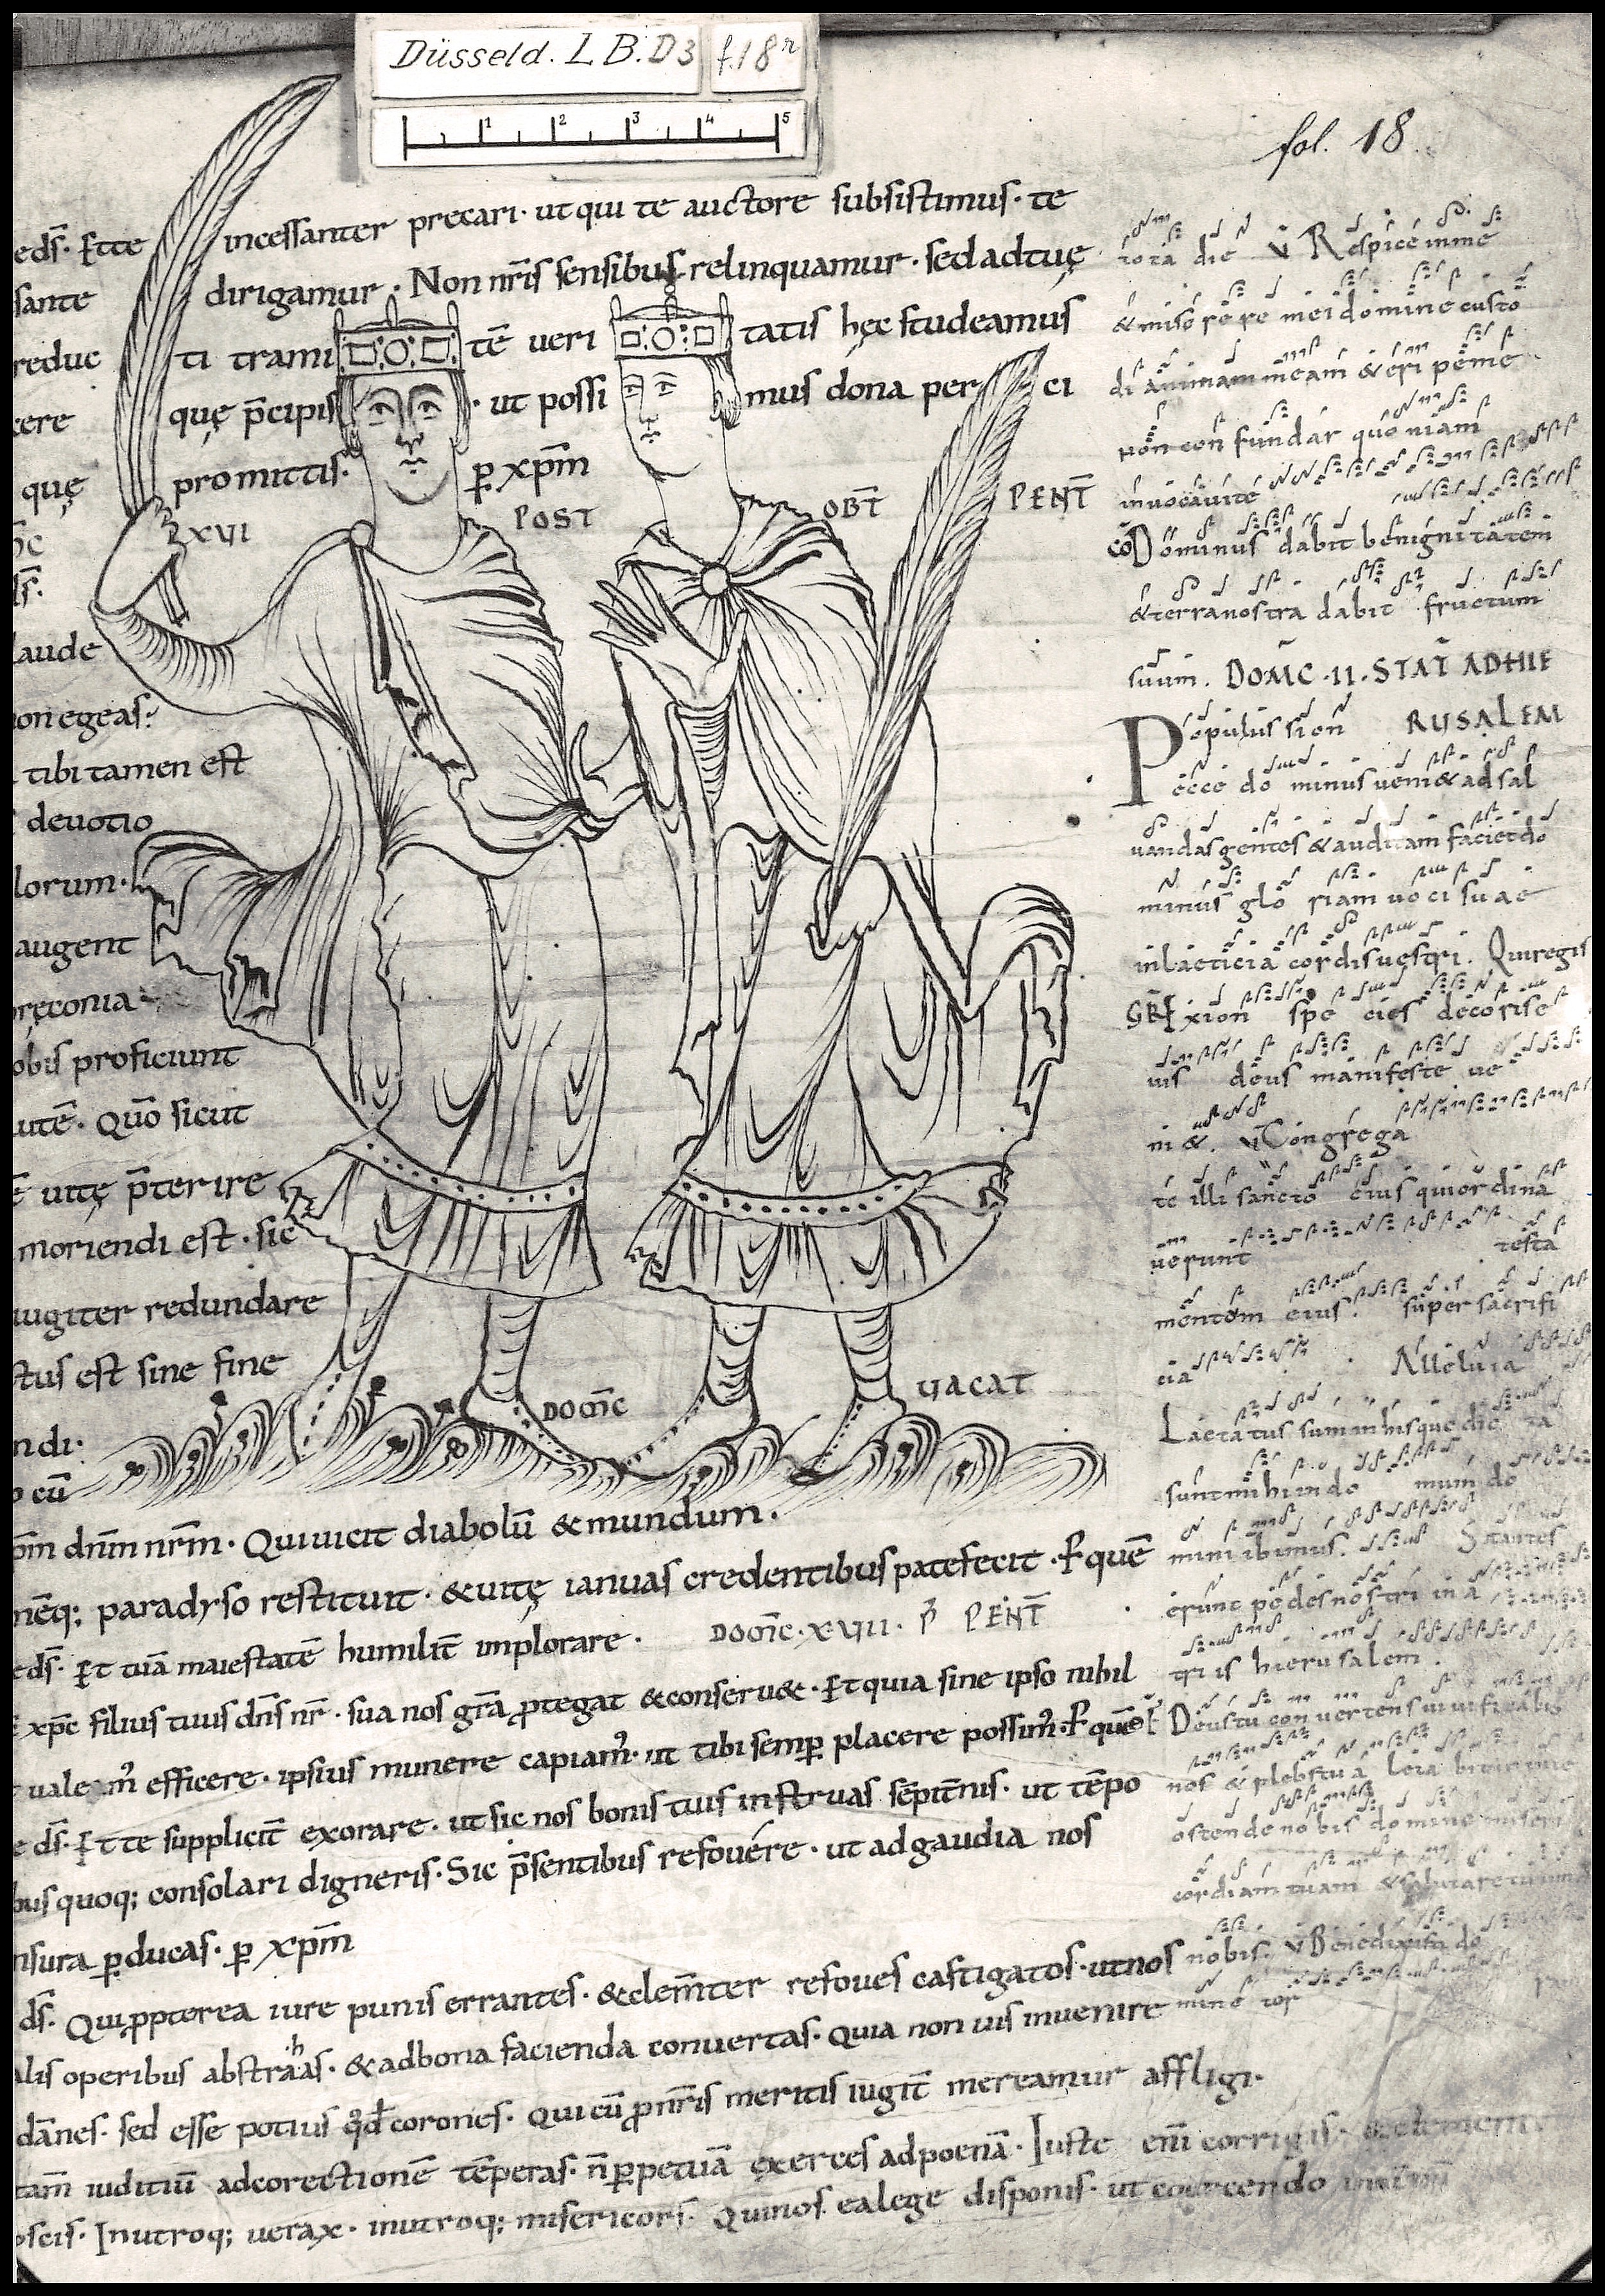 Düsseld. L B. D3 f. 18r
1 2 3 4 5
fol. 18
eds̄. Et te incessanter precari · ut qui te auctore subsistimus · te
sante dirigamur · Non nr̄is sensibus relinquamur · sed ad tuę
reduc ti trami tē veri tatis hęc studeamus
cere quę p̄cipis · ut possi mus dona per ci
quę promittis · p̱ xp̄m
XVI POST OBT̄ PENT̄
ds̄.
laude
non egeas:
tibi tamen est
deuotio
lorum ·
augent
pręconia
obis proficiunt
utē · Quō sicut
uitę p̄terire
moriendi est · sic
iugiter redundare
stus est sine fine
DOM̄C UACAT
ndi:
cū
dn̄m nr̄m · Qui uicit diabolū & mundum ·
paradyso restituit · & uitę ianuas credentibus patefecit · P quē
eds̄. Et tuā maiestatē humilit̄ implorare · DOM̄C · XVII · P̄ PENT̄
xp̄c filius tuus dn̄s nr̄ · sua nos gr̄a ꝓtegat & conseru& · Et quia sine ipso nihil
ualeam᾿ efficere · ipsius munere capiam᾿ · ut tibi semp̱ placere possim᾿ · P quē
e ds̄. Et te supplicit̄ exorare · ut sic nos bonis tuis instruas sēpit̄nis · ut tēpo
bus quoq; consolari digneris · Sic p̄sentibus refouere · ut ad gaudia nos
nsura p̱ducas · p̱ xp̄m
ds̄. Qui ꝓpterea iure punis errantes · & clem̄ter refoues castigatos · ut nos
h
alis operibus abstraas · & ad bona facienda conuertas · Quia non uis inuenire
dānes · sed esse potius corones · Qui cū ꝓ nr̄is meritis iugit̄ mereamur affligi ·
tam̄ iuditiū ad corectionē tēperas · n̄ p̱petuā exerces ad poenā · Iuste enī corrigis ·
oscis · In utroq; uerax · in utroq; misericors · Qui nos ea lege disponis · ut coercendo
tota die v̄ Respice in me
& miserere mei domine custo
di animam meam & eri pe me
non con fundar quo niam
inuocaui te
cō Dominus dabit benignitatem
& terra nostra dabit fructum
suum. DOM̄C · II · STAT̄ AD HIE
Populus sion RUSALEM
ecce do minus ueni& ad sal
uandas gentes & auditam faciet do
minus glo riam uoci suae
in laeticia cordis uestri. Qui regis
GR̄ Ex sion spe cies decoris e
ius deus manifeste ue
ni &. v̄ Congrega
te illi sancto eius qui ordina
uerunt testa
mentum eius super sacrifi
cia Alleluia
Laetatus sum in his que dic ta
sunt mihi in do mum do
mini ibimus. Stantes
erunt pedes nostri in a
tri is hierusalem.
Deus tu con uertens uiuificabis
nos & plebs tua leta bitur in te
ostende no bis domine miseri
cordiam tuam & salutare tuum
nobis. v̄ Benedixisti do
mine ter